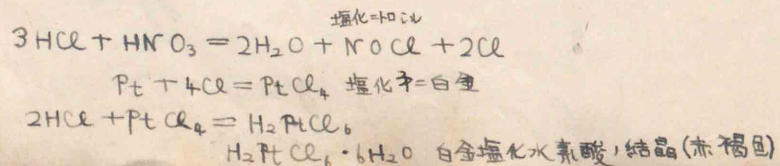 塩化ニトロシル
3HCl + HNO₃ = 2H₂O + NOCl + 2Cl
Pt + 4Cl = PtCl₄ 塩化第二白金
2HCl + PtCl₄ = H₂PtCl₆
H₂PtCl₆・6H₂O 白金塩化水素酸,結晶(赤褐色)